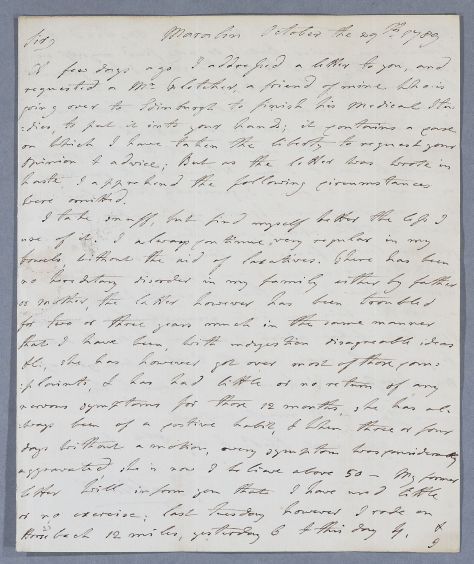 Sir, Maralin October the 29th 1789
A few days ago I addressed a letter to you, and
requested a Mr Fletcher, a friend of mine who is
going over to Edinburgh to finish his Medical Stu-
-dies, to put it into your hands; it contains a case
on which I have taken the liberty to request your
opinion & advice; But as the letter was wrote in
haste, I apprehend the following circumstances
were omitted.
I take snuff, but find myself better the less I
use of it. I always continue very regular in my
bowels, without the aid of laxatives. There has been
no hereditary disorder in my family either by father
or mother, the latter however has been troubled
for two or three years much in the same manner
that I have been, with indigestion disagreeable ideas
&c, she has however got over most of those com-
-plaints, & has had little or no return of any
nervous symptoms for these 12 months, she has al-
ways been of a costive habit, & when three or four
days without a motion, every symptom was considerably
aggravated, she is now I believe above 50 - My former
letter will inform you that I have used little
or no exercise; last Tuesday however I rode on
Horseback 12 miles, yesterday 6 & this day 4,